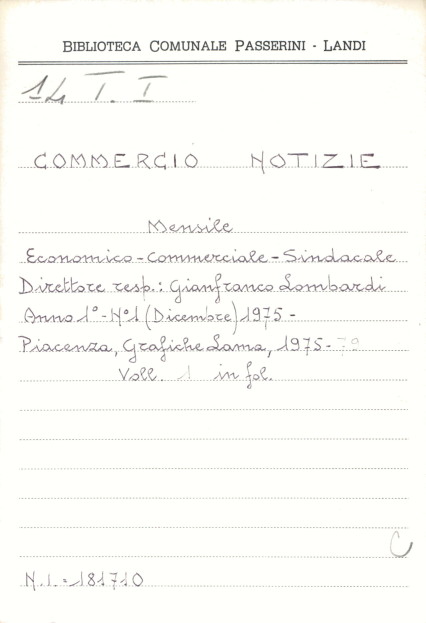 BIBLIOTECA COMUNALE PASSERINI - LANDI
14 T. I
COMMERCIO NOTIZIE
Mensile
Economico-Commerciale-Sindacale
Direttore resp.: Gianfranco Lombardi
Anno 1°-N°1 (Dicembre) 1975-
Piacenza, Grafiche Lama, 1975-79
Voll. 1 in fol.
C
N.I.=181710